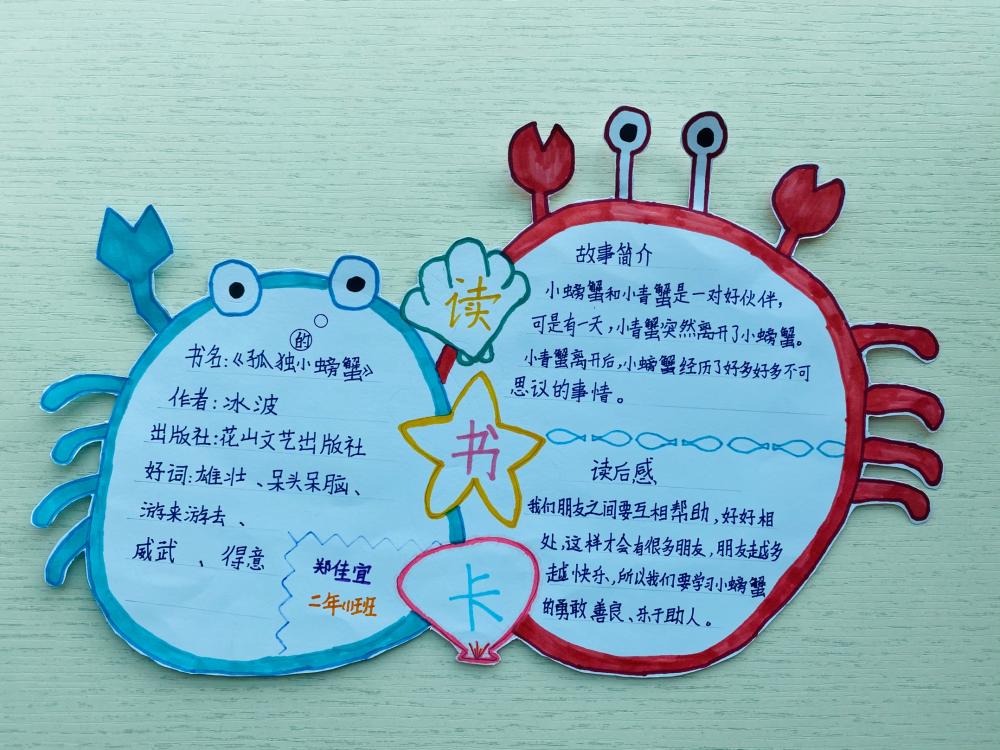 的
书名:《孤独小螃蟹》
作者:冰波
出版社:花山文艺出版社
好词:雄壮、呆头呆脑、
游来游去、
威武、得意
郑佳宜
二年(1)班
读
书
卡
故事简介
小螃蟹和小青蟹是一对好伙伴,
可是有一天,小青蟹突然离开了小螃蟹。
小青蟹离开后,小螃蟹经历了好多好多不可
思议的事情。
读后感
我们朋友之间要互相帮助,好好相
处,这样才会有很多朋友,朋友越多
越快乐,所以我们要学习小螃蟹
的勇敢善良、乐于助人。